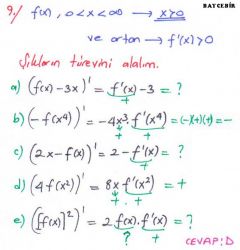 BAYCEBİR
9./ f(x), 0<x<∞ → x>0
ve artan → f'(x)>0
Şıkların türevini alalım.
a) (f(x)-3x)' = f'(x)-3 = ?
+
b) (-f(x⁴))' = -4x³.f'(x⁴) = (-)(+)(+) = -
+ +
c) (2x-f(x))' = 2-f'(x) = ?
+
d) (4f(x²))' = 8x f'(x²) = +
+ +
e) ([f(x)]²)' = 2 f(x).f'(x) = ?
? +
CEVAP:D